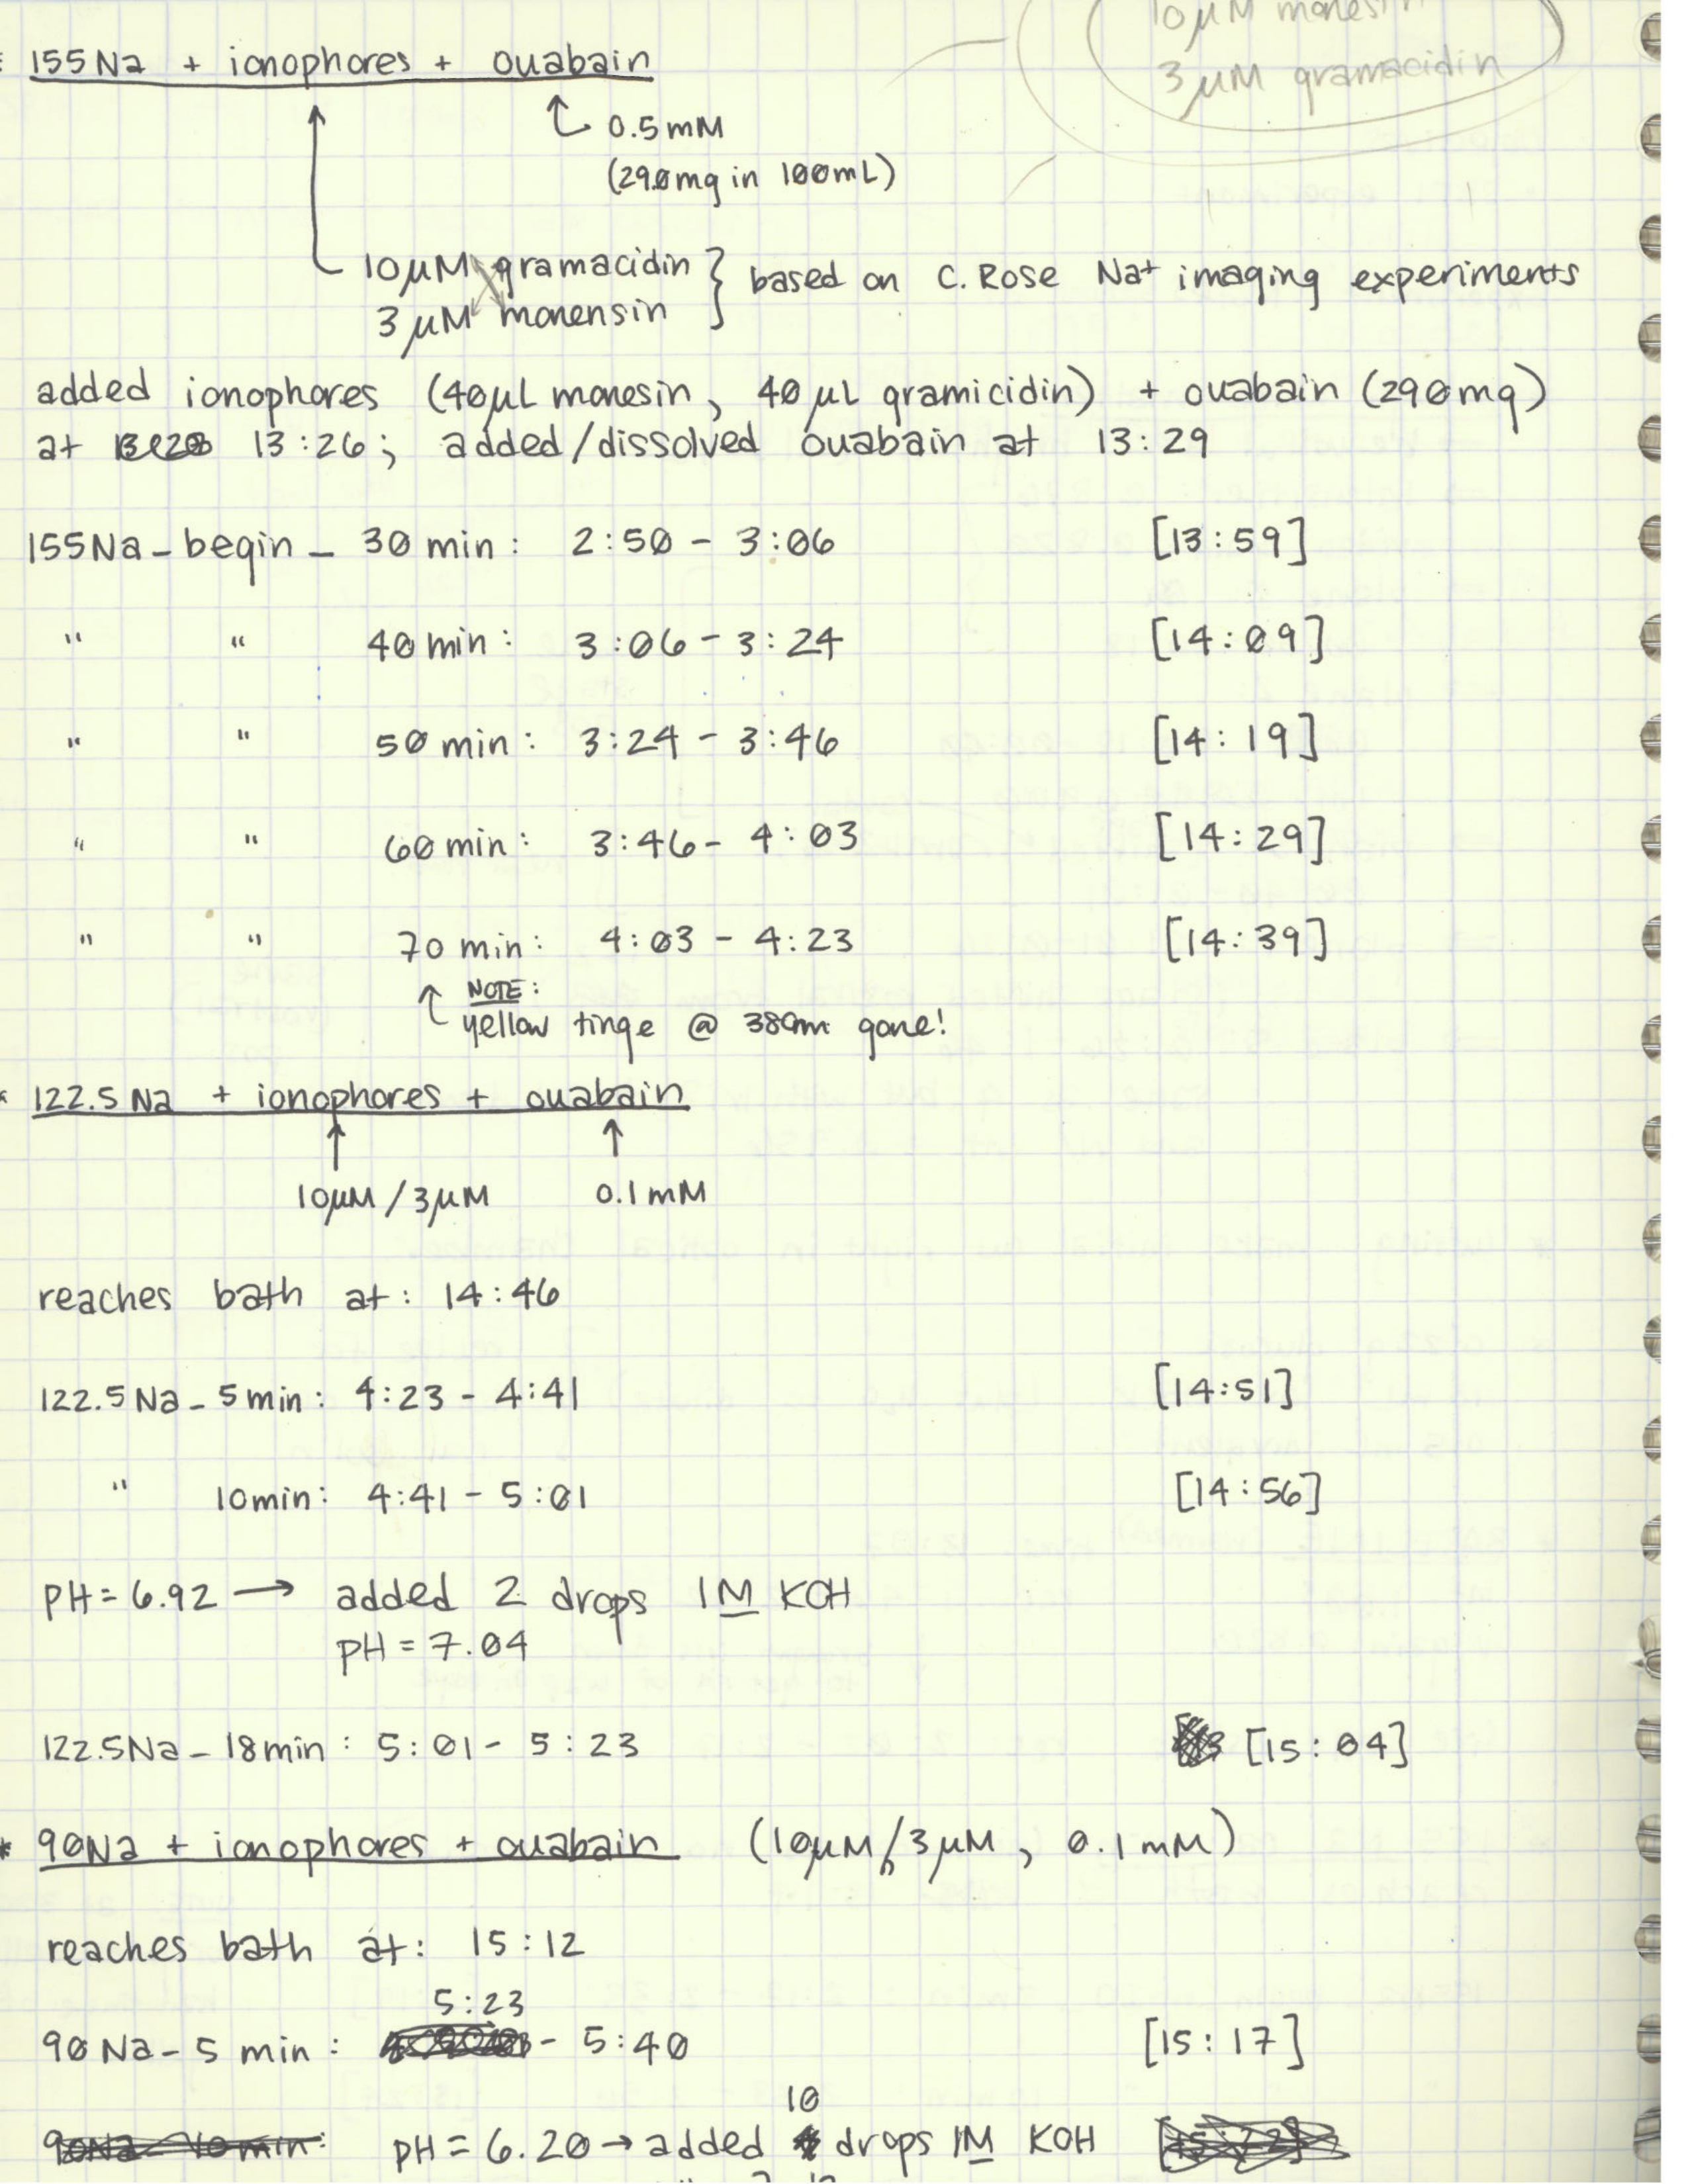 10µM monesin
155Na + ionophores + ouabain
3µM gramacidin
0.5mM
(290mg in 100mL)
10µM gramacidin
3µM monensin
based on C. Rose Na+ imaging experiments
added ionophores (40µL monesin, 40µL gramicidin) + ouabain (290mg)
at 13:26; added/dissolved ouabain at 13:29
155Na - begin - 30 min: 2:50 - 3:06 [13:59]
" " 40 min: 3:06 - 3:24 [14:09]
" " 50 min: 3:24 - 3:46 [14:19]
" " 60 min: 3:46 - 4:03 [14:29]
" " 70 min: 4:03 - 4:23 [14:39]
NOTE:
yellow tinge @ 380nm gone!
122.5 Na + ionophores + ouabain
10µM/3µM 0.1mM
reaches bath at: 14:46
122.5 Na - 5 min: 4:23 - 4:41 [14:51]
" 10min: 4:41 - 5:01 [14:56]
pH = 6.92 → added 2 drops 1M KOH
pH = 7.04
122.5Na - 18min: 5:01 - 5:23 [15:04]
* 90Na + ionophores + ouabain (10µM/3µM, 0.1mM)
reaches bath at: 15:12
5:23
90 Na - 5 min: - 5:40 [15:17]
10
90Na - 10min: pH = 6.20 → added drops 1M KOH